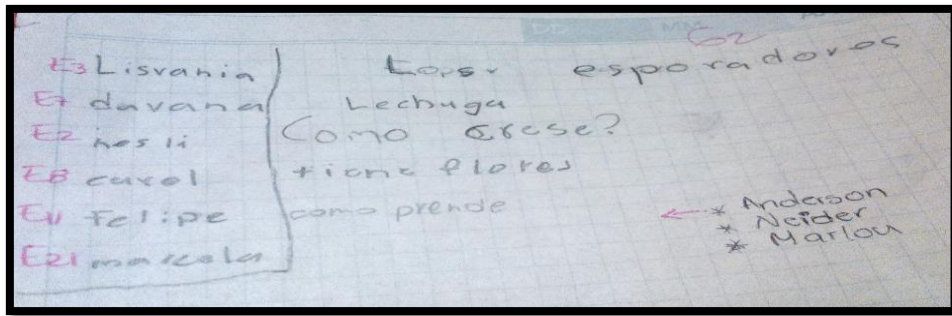 DD MM
G2
E3 Lisvania
E7 davana
E2 hesli
E8 carol
E11 Felipe
E21 marcela
Los esporadores
Lechuga
Como crese?
tiene flores
como prende
* Anderson
* Neider
* Marlou